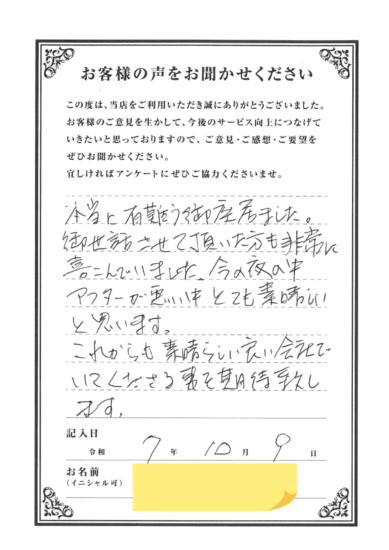 お客様の声をお聞かせください
この度は、当店をご利用いただき誠にありがとうございました。
お客様のご意見を生かして、今後のサービス向上につなげて
いきたいと思っておりますので、ご意見・ご感想・ご要望を
ぜひお聞かせください。
宜しければアンケートにぜひご協力くださいませ。
本当に有難う御座居ました。
御世話させて頂いた方も非常に
喜こんでいました。今の夜の中
アフターが悪い中とても素晴らしい
と思います。
これからも素晴らしい良い会社で
いてくださる事を期待致し
ます。
記入日
令和 7 年 10 月 9 日
お名前
(イニシャル可)